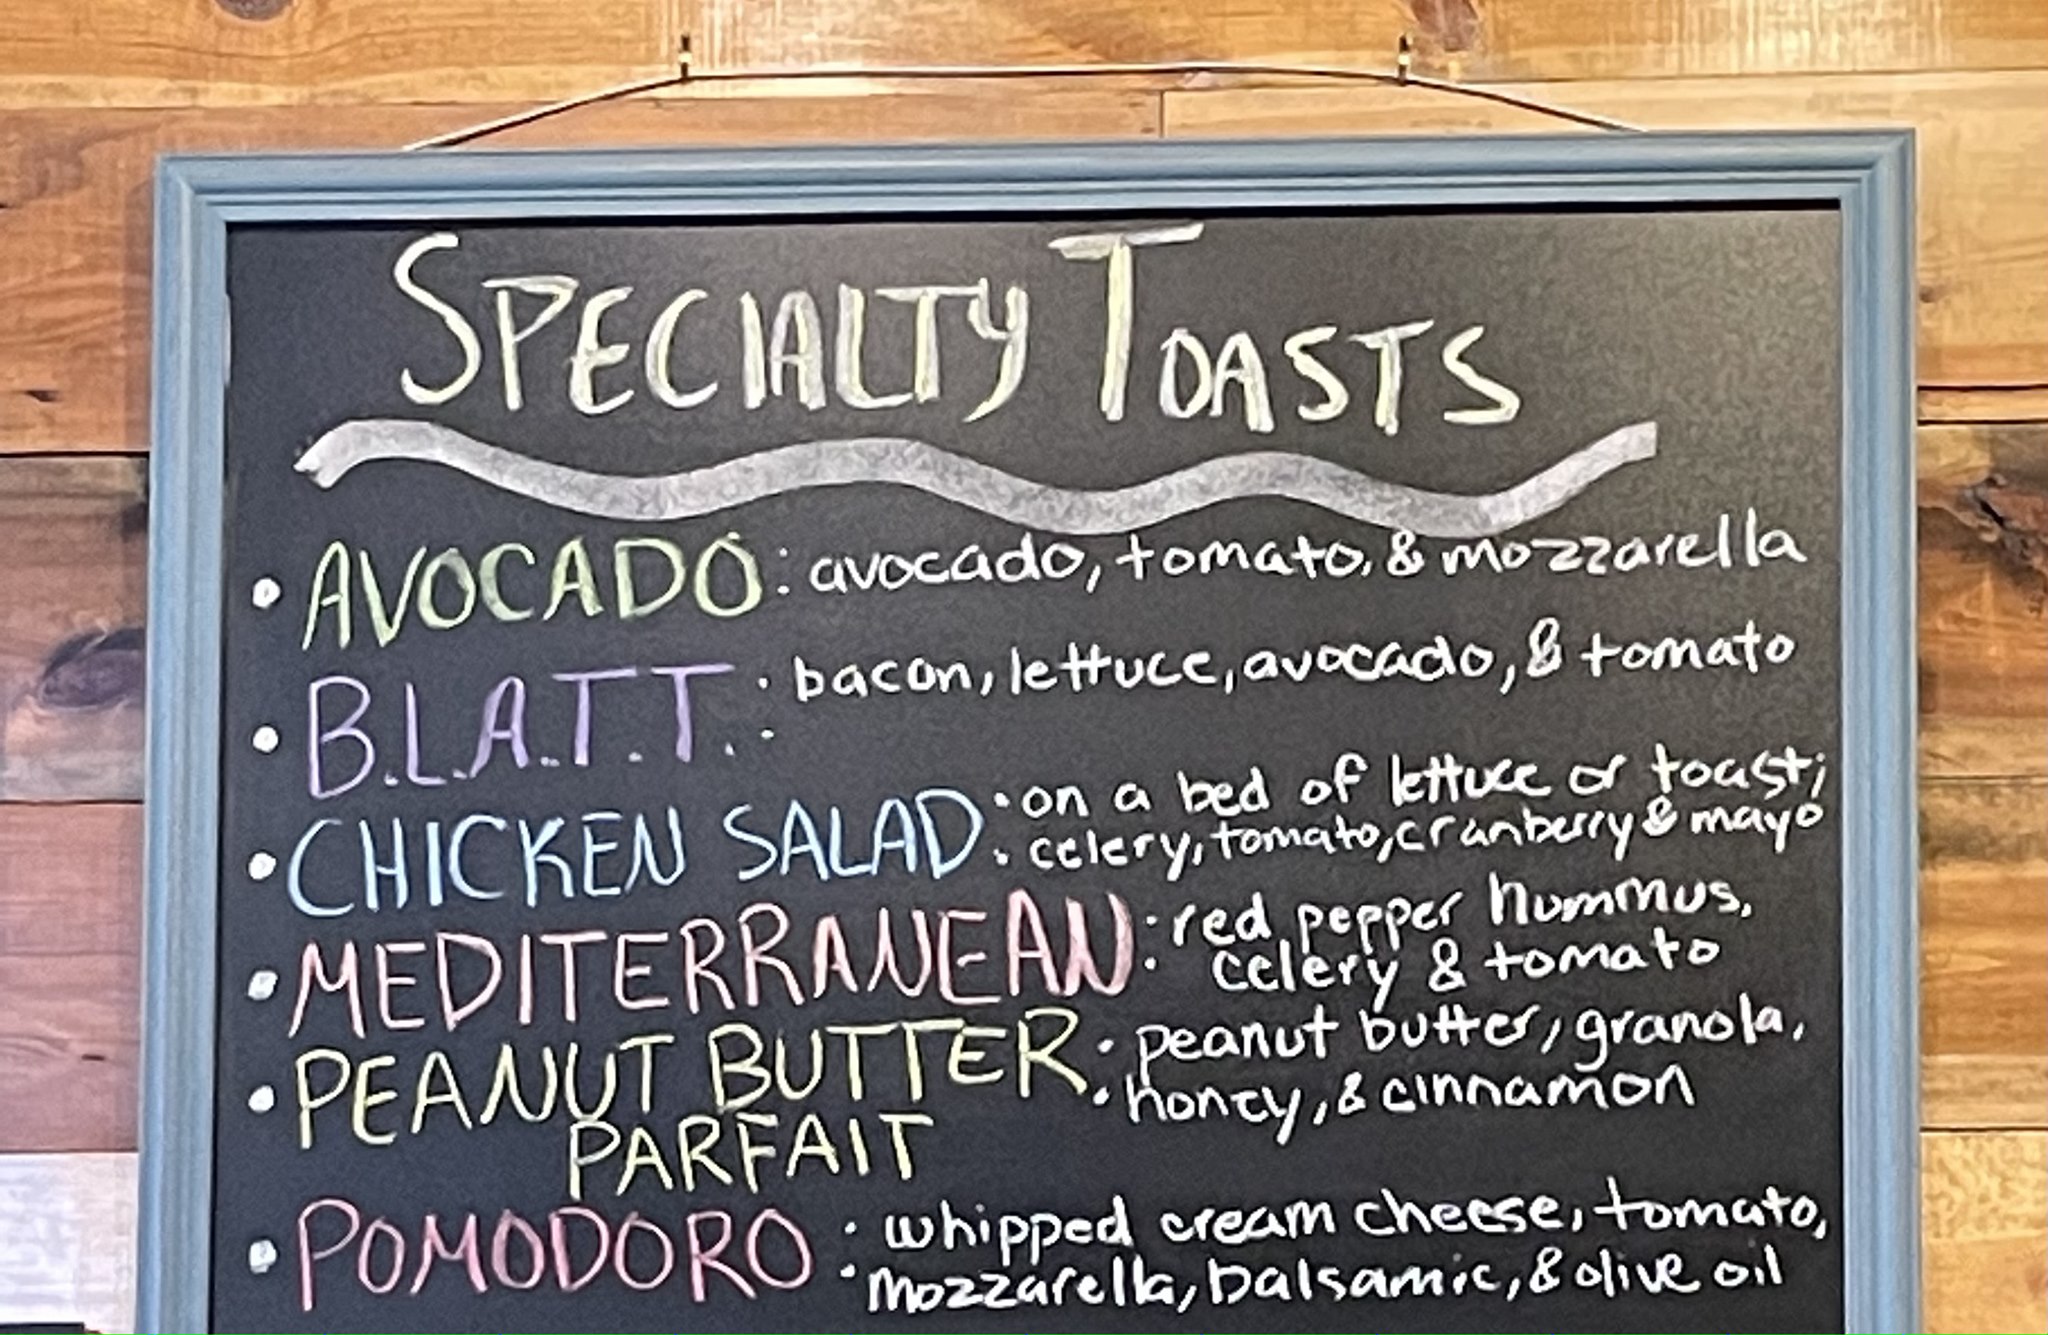 SPECIALTY TOASTS
• AVOCADO: avocado, tomato, & mozzarella
• B.L.A.T.T.: bacon, lettuce, avocado, & tomato
• CHICKEN SALAD: on a bed of lettuce or toast;
celery, tomato, cranberry & mayo
• MEDITERRANEAN: red pepper hummus,
celery & tomato
• PEANUT BUTTER: peanut butter, granola,
PARFAIT honey, & cinnamon
• POMODORO: whipped cream cheese, tomato,
mozzarella, balsamic, & olive oil